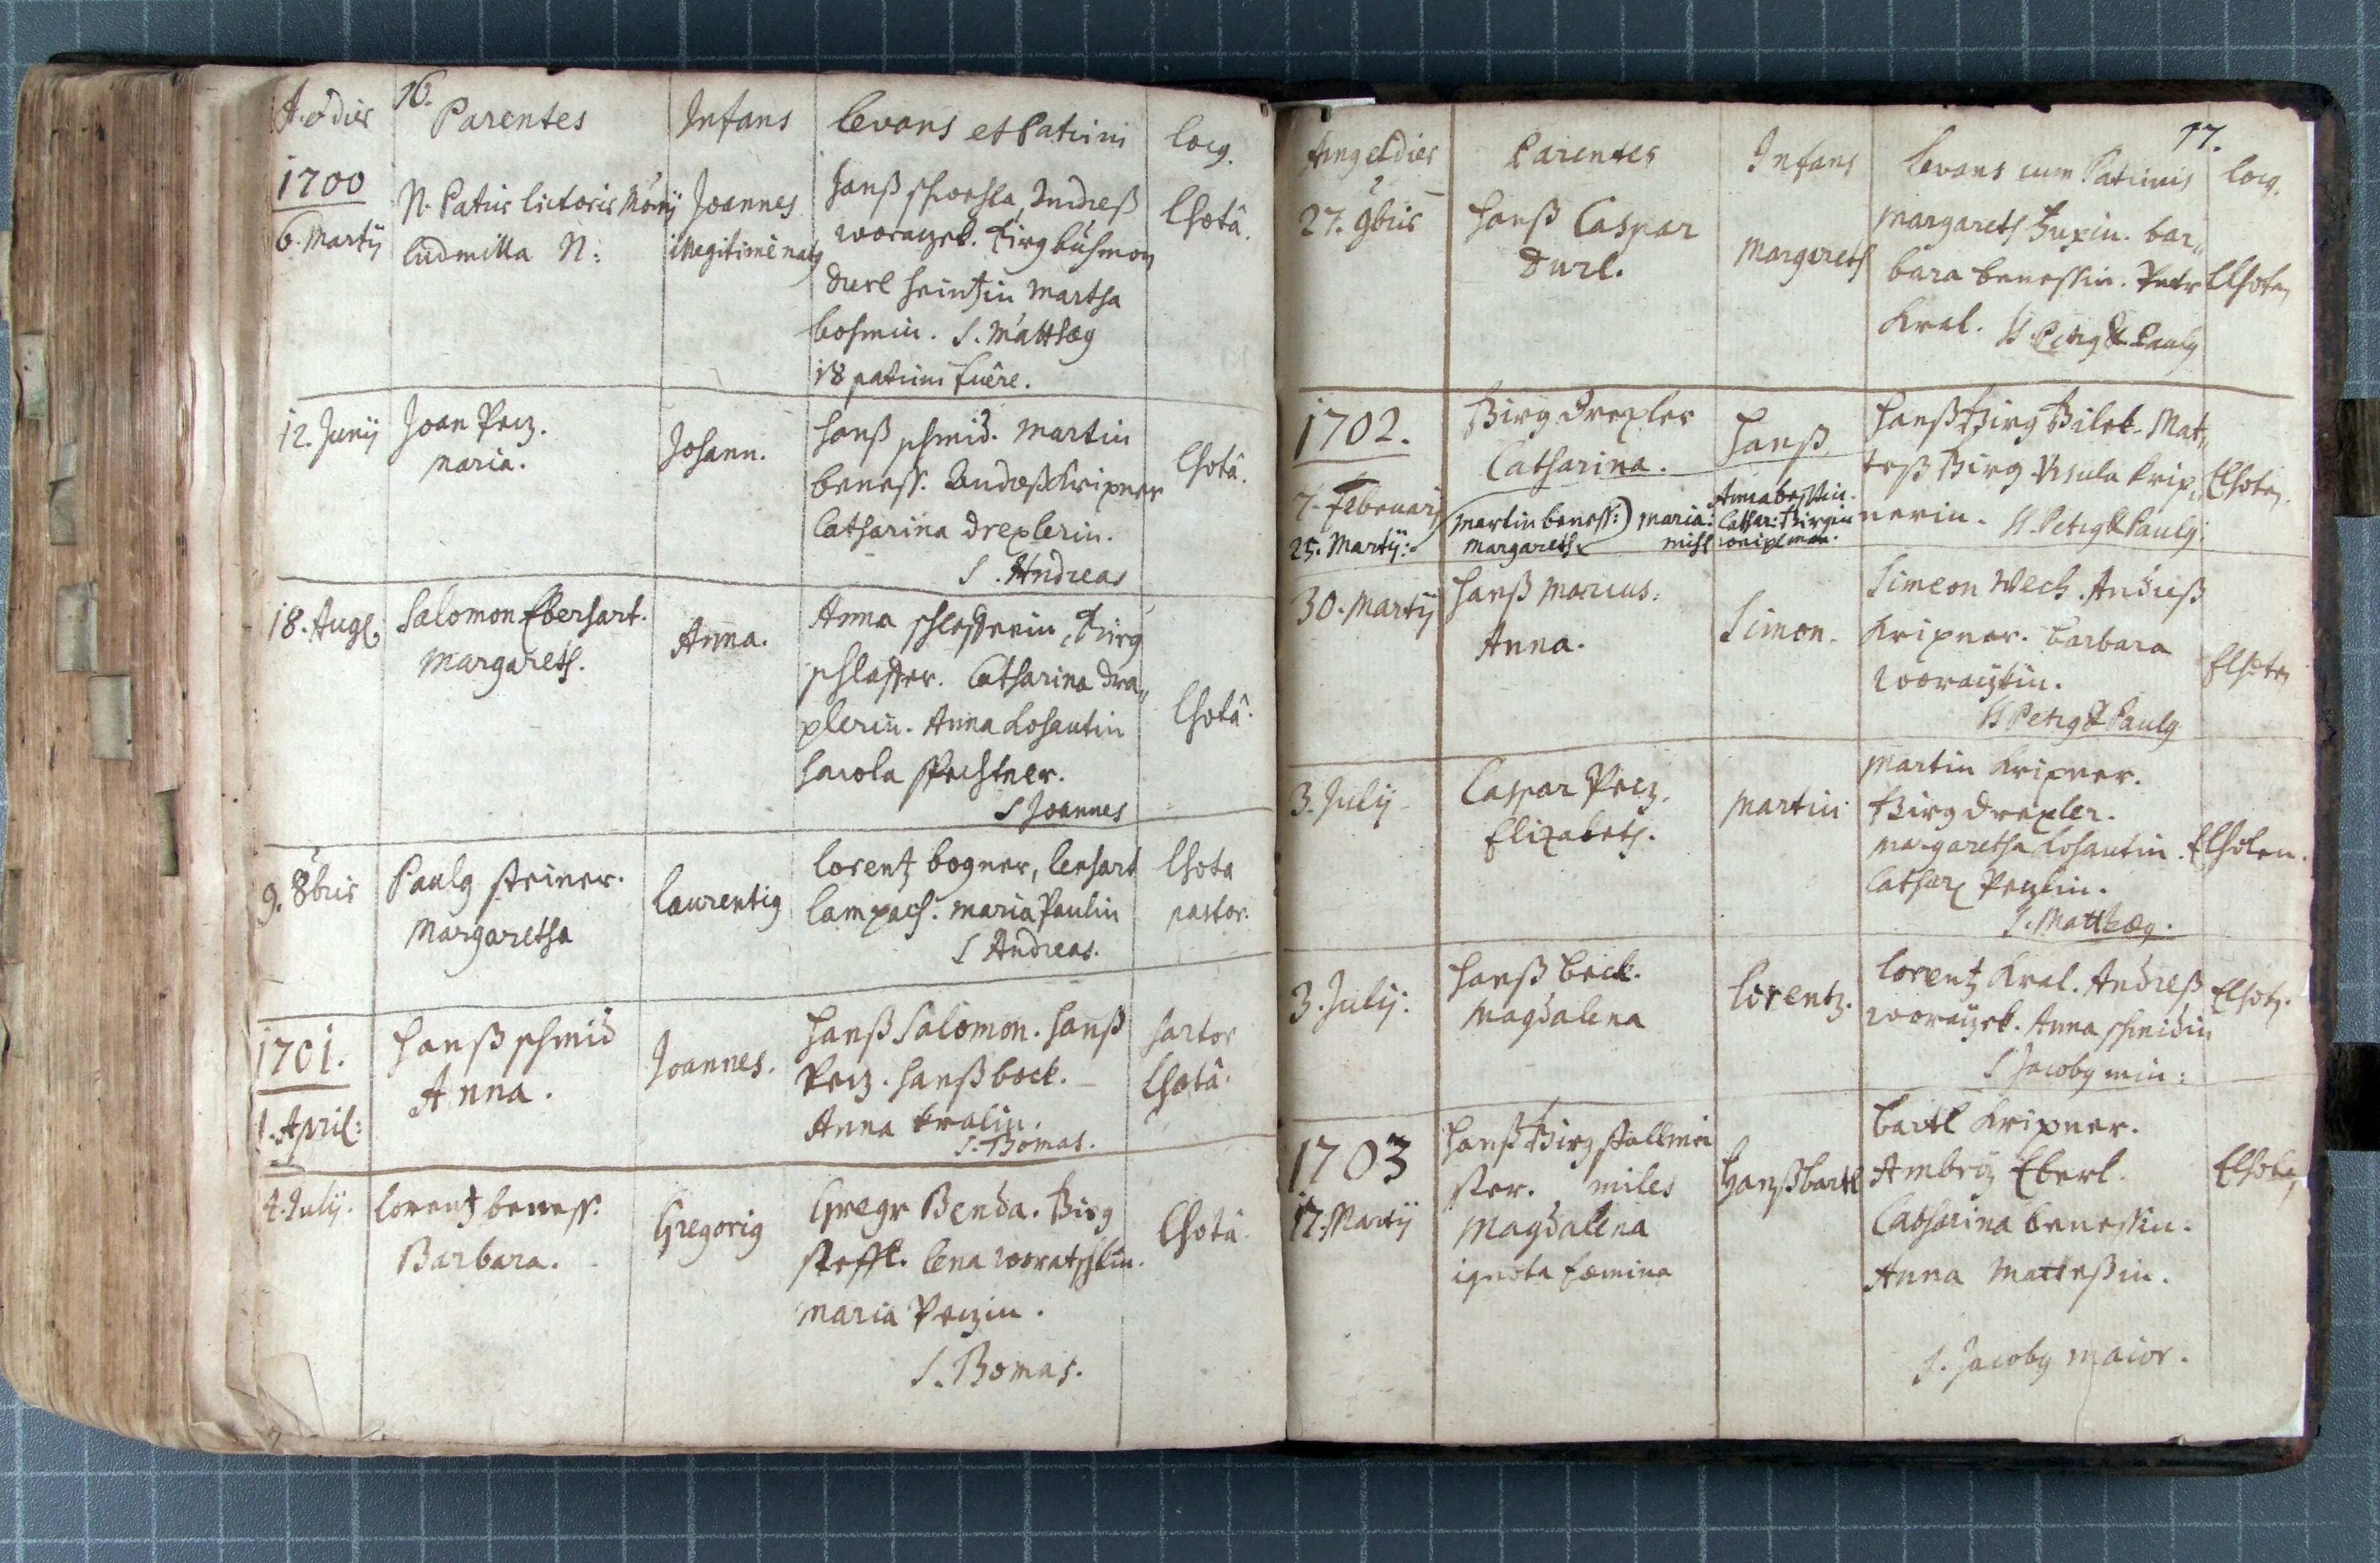 16.
A. et dies Parentes Infans levans et Patrini locus.
1700
6. Martij
N. Patris lictoris
ludmilla N:
Joannes
illegitime natus
hanß Andreß
worazek. Girg
Durl martha
bohmin. S. Matthæus
18 patrini fuêre.
lhotâ.
12. Junij
Joan Pecz.
maria.
Johann.
hanß schmid. Martin
beness. Andreß Kripner
Catharina Drexlerin.
S. Andreas
lhotâ.
18. Aug.
Salomon Eberhart.
Margareth.
Anna.
Anna Girg
Catharina Dra„
xlerin. Anna Kohautin
S Joannes
lhotâ.
9. 8bris
Paulus steiner.
Margaretha
laurentius
lorentz bogner, lenhart
lampach: maria Paulin
S Andreas.
lhota
pastor.
1701.
1. April:
hanß schmid
Anna.
Joannes.
hanß Salomon. hanß
Pecz. hanß bock.
Anna kralin.
S. Thomas.
sartor
lhotâ.
4. Julij.
lorentz beness:
Barbara.
Gregorius
Gregr Benda. Girg
steffl. lena woratschkin.
maria Peczin.
S. Thomas.
lhotâ.
17.
Annus et dies Parentes Infans levans cum Patrinis locus.
27. 9bris
hanß Caspar
Durl.
Margareth
margareth bar„
bara benessin. Petr
Kral. SS Petrus & Paulus
Elhoten
1702.
7. Februarij
Girg Drexler
Catharina.
hanß
hanß Girg Bilek. Mat„
teß Girg. Ursula Krip„
nerin. SS. Petrus & Paulus.
Elhoten.
25. Martij:
martin beness:
margareth
maria:
Anna
Cathar:
30. Martij
hanß marcus.
Anna.
Simon.
Simeon Wech. Andreß
Kripner. barbara
woraczkin.
SS Petrus & Paulus
Elhoten
3. Julij
Caspar Pecz.
Elizabeth.
martin
martin Kripner.
Girg Drexler.
margaretha Kohautin.
Cathar: Peczkin.
S. Matthæus.
Elhoten.
3. Julij:
hanß beck.
Magdalena
lorentz.
lorentz Kral. Andreß
worayek. Anna schmidin
S Jacobus min:
Elhot.
1703
17. Martij
hanß Girg stallmei
ster. miles
Magdalena
ignota fœmina
hanß bartl
bartl Kripner.
Ambroz Eberl.
Catharina benessin.
Anna Matteßin.
S. Jacobus maior.
Elhoten